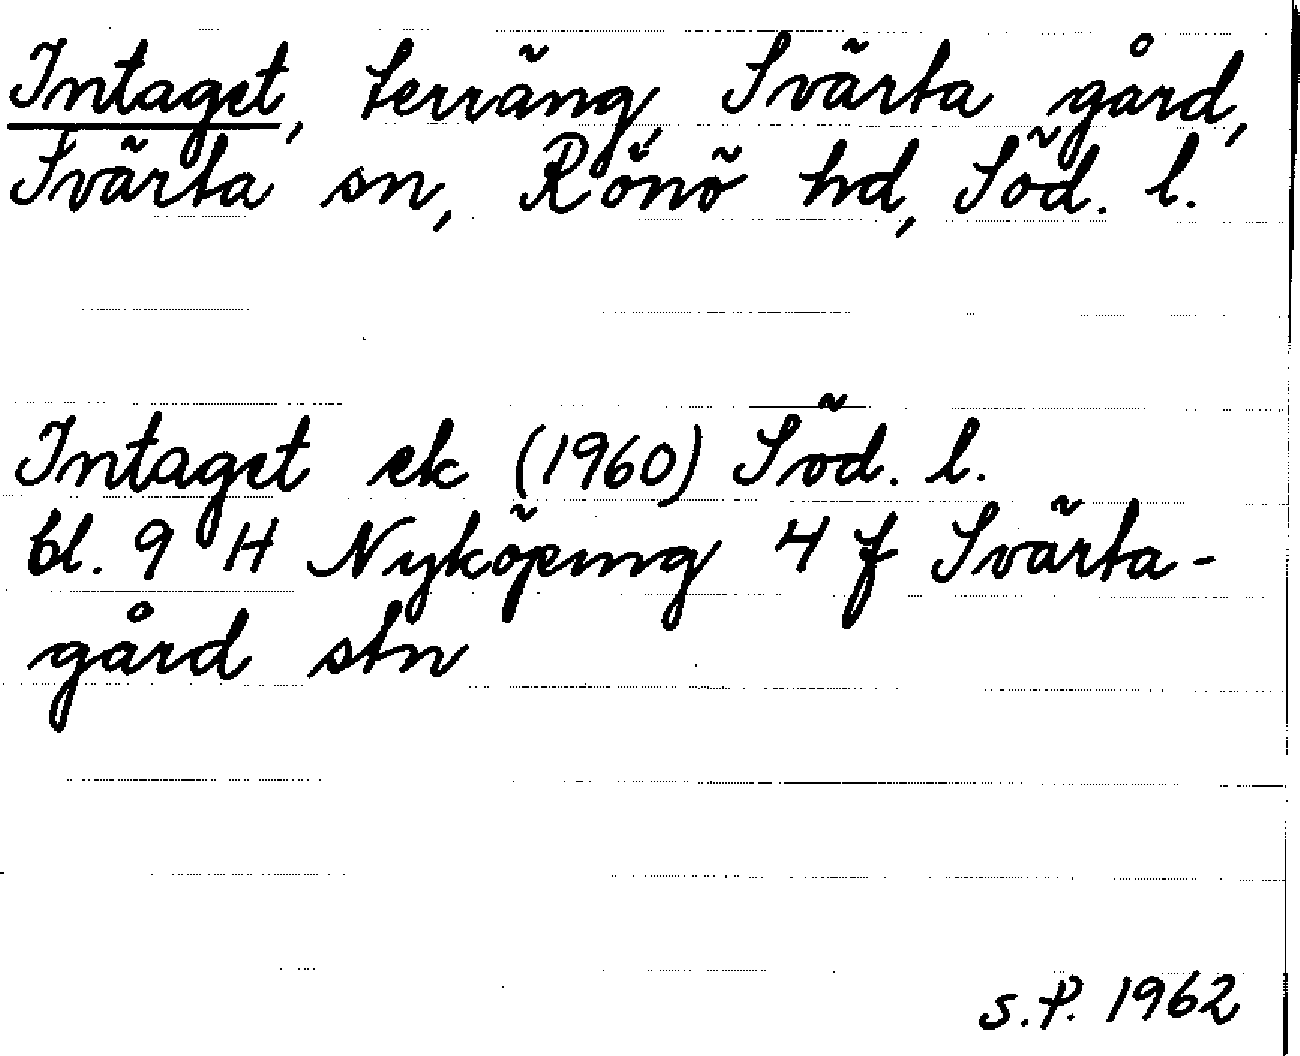 Intaget, terräng, Svärta gård,
Svärta sn, Rönö hd, Söd. l.
Intaget ek (1960) Söd. l.
bl. 9 H Nyköping 4 f Svärta-
gård stn
S.P. 1962